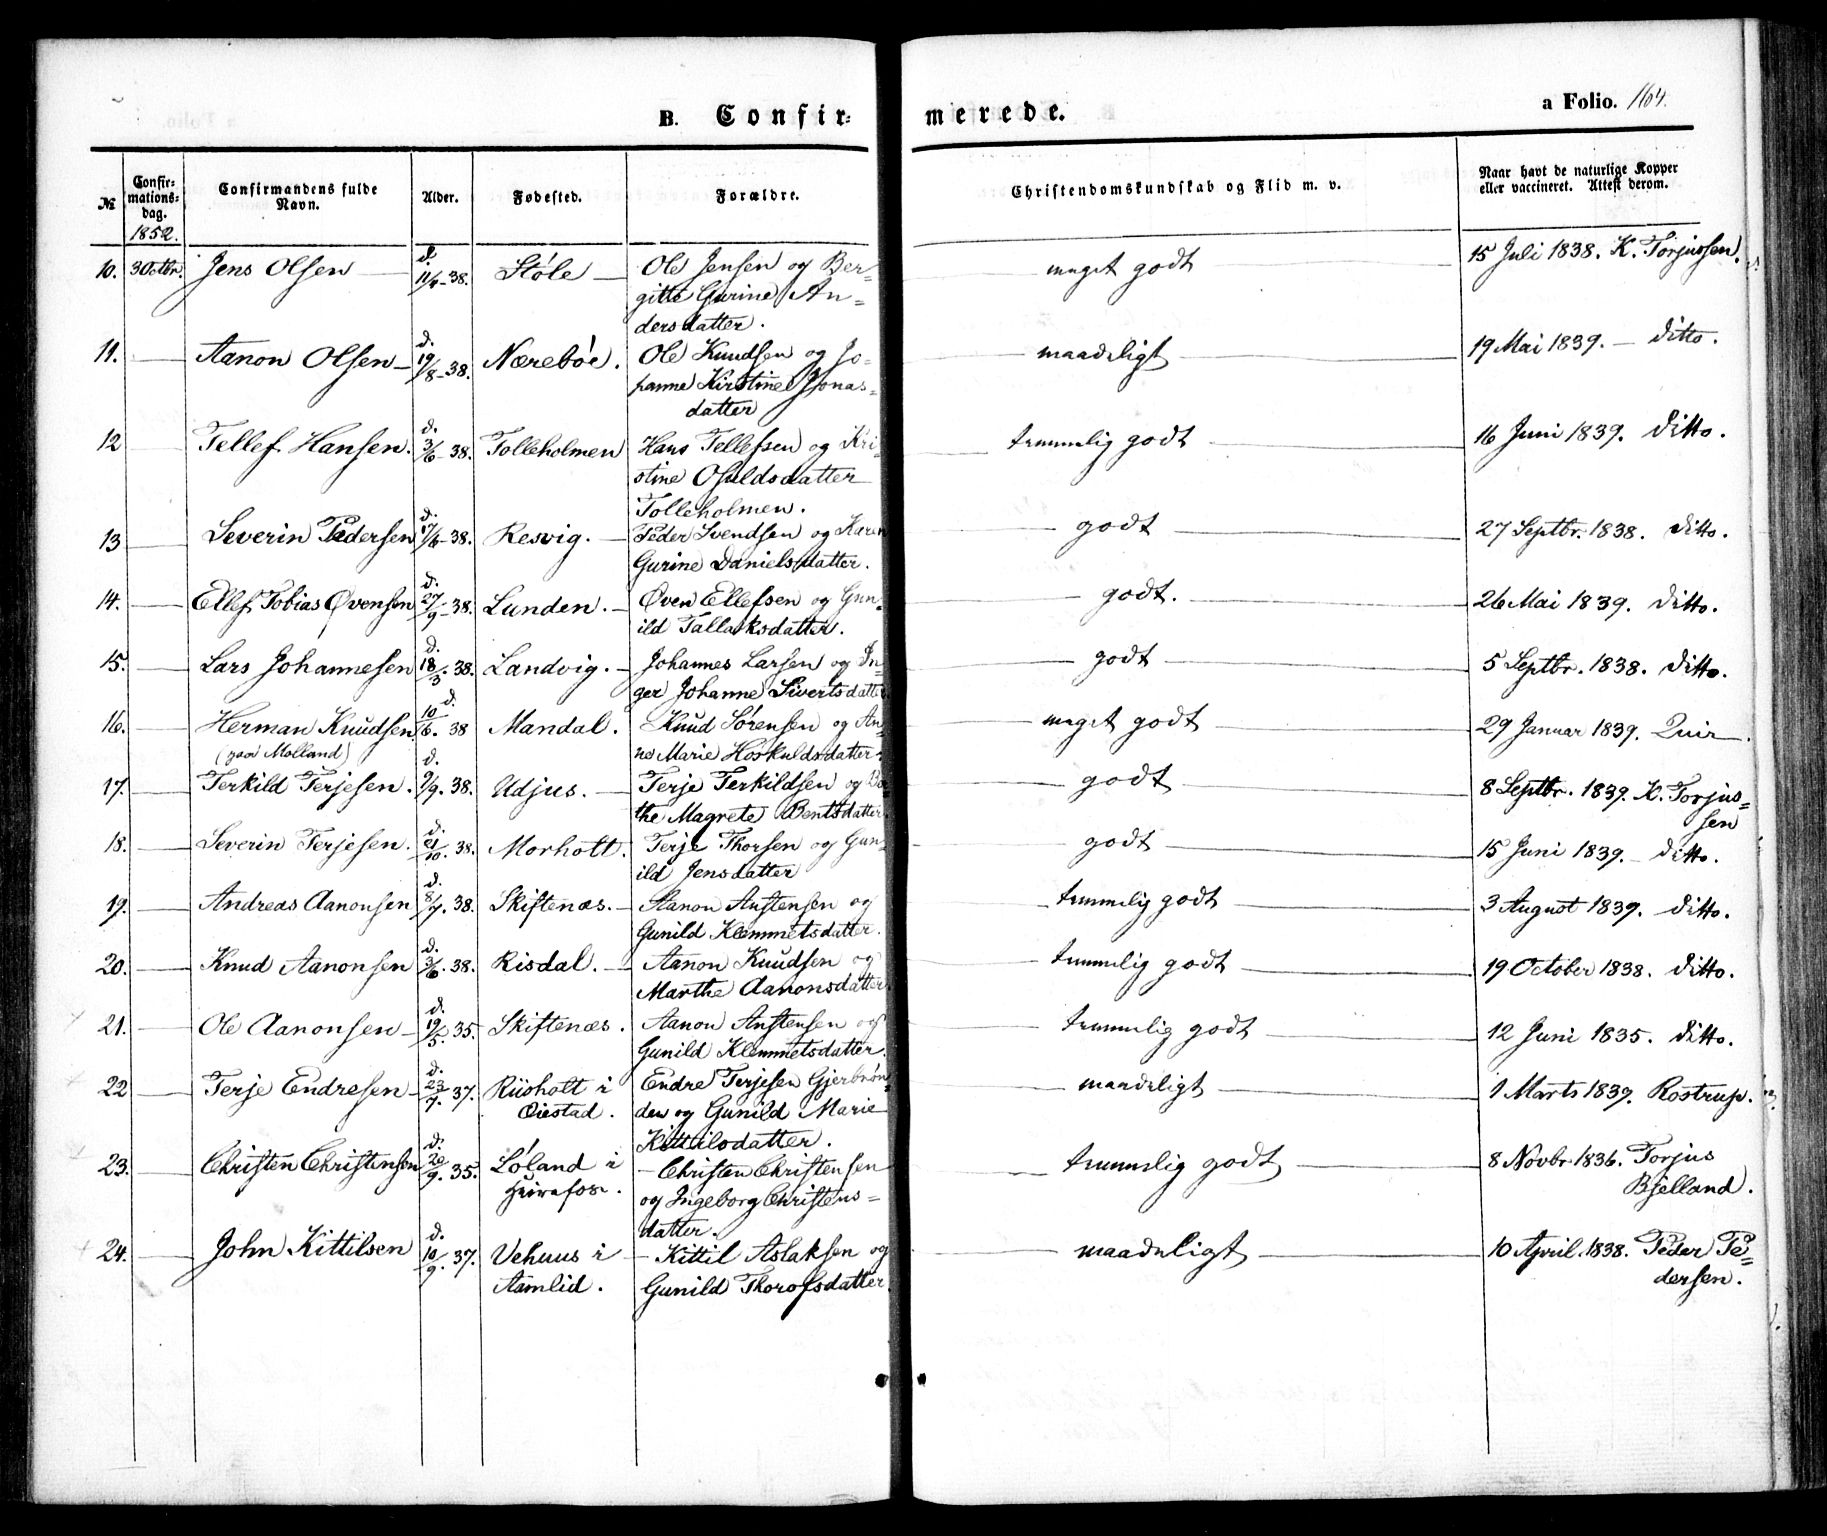 B. Confir=
merede.
a Folio. 164.
№
Confir=
mations=
dag.
1852.
Confirmandens fulde
Navn.
Alder.
Fødested.
Forældre.
Christendomskundskab og Flid m. v.
Naar havt de naturlige Kopper
eller vaccineret. Attest derom.
10. 3 Octbr. Jens Olsen d. 11/4-38. Støle Ole Jensen og Ber= meget godt 15 Juli 1838. K. Torjussen.
gitte Gurine An=
dersdatter.
11. Aanon Olsen d. 19/8-38. Nærebøe. Ole Knudsen og Jo= maadeligt 19 Mai 1839. ditto.
hanne Kirstine Jonas=
datter
12 Tellef Hansen. d. 3/6 38. Tolleholmen Hans Tellefsen og Kri= temmelig godt 16 Juni 1839. ditto.
stine Osuldsdatter
Tolleholmen.
13 Severin Pedersen d. 17/6-38. Resvig. Peder Svendsen og Karen godt 27 Septbr. 1838. ditto.
Gurine Danielsdatter.
14. Ellef Tobias Øvensen d. 27/9-38. Lunden. Øven Ellefsen og Gun= godt. 26 Mai 1839. ditto.
ild Tallaksdatter.
15. Lars Johannesen d. 18/3. 38. Landvig. Johannes Larsen og In= godt 5 Septbr. 1838. ditto.
ger Johanne Sivertsdatter
16. Herman Knudsen d. 10/6. 38 Mandal. Knud Sørensen og An= meget godt 29 Januar 1839. Quir.
(paa Molland) ne Marie Hoskuldsdatter.
17. Terkild Terjesen. d. 9/9. 38. Udjus. Terje Terkildsen og Bor= godt 8 Septbr. 1839. K. Torjus=
the Magrete Bentsdatter. sen
18. Severin Terjesen. d. 21/10. 38. Morholt. Terje Thorsen og Gun= godt 15 Juni 1839. ditto.
ild Jensdatter
19. Andreas Aanonsen d. 8/7. 38. Skiftenæs. Aanon Anstensen og temmelig godt 3 August 1839. ditto.
Gunild Klemmetsdatter.
20. Knud Aanonsen d. 3/6. 38. Risdal. Aanon Knudsen og temmelig godt 19 October 1838. ditto.
Marthe Aanonsdatter
21. Ole Aanonsen d. 19/5. 35 Skiftenæs. Aanon Anstensen og temmelig godt 12 Juni 1835. ditto.
Gunild Klemmetsdatter.
22 Terje Endresen d. 23/7. 37. Riisholt i Endre Terjesen Gjerbrøn= maadeligt 1 Marts 1839. Rostrup.
Øiestad. den og Gunild Marie
Kittilsdatter.
23. Christen Christensen d. 20/9. 35. Løland i Christen Christensen temmelig godt 8 Novbr 1836. Torjus
og Ingeborg Christens= Bjelland.
datter.
24. John Kittilsen d. 10/9. 37. Vehuus i Kittil Aslaksen og maadeligt 10 April. 1838. Peder Pe=
Aamlid. Gunild Thorofsdatter dersen.